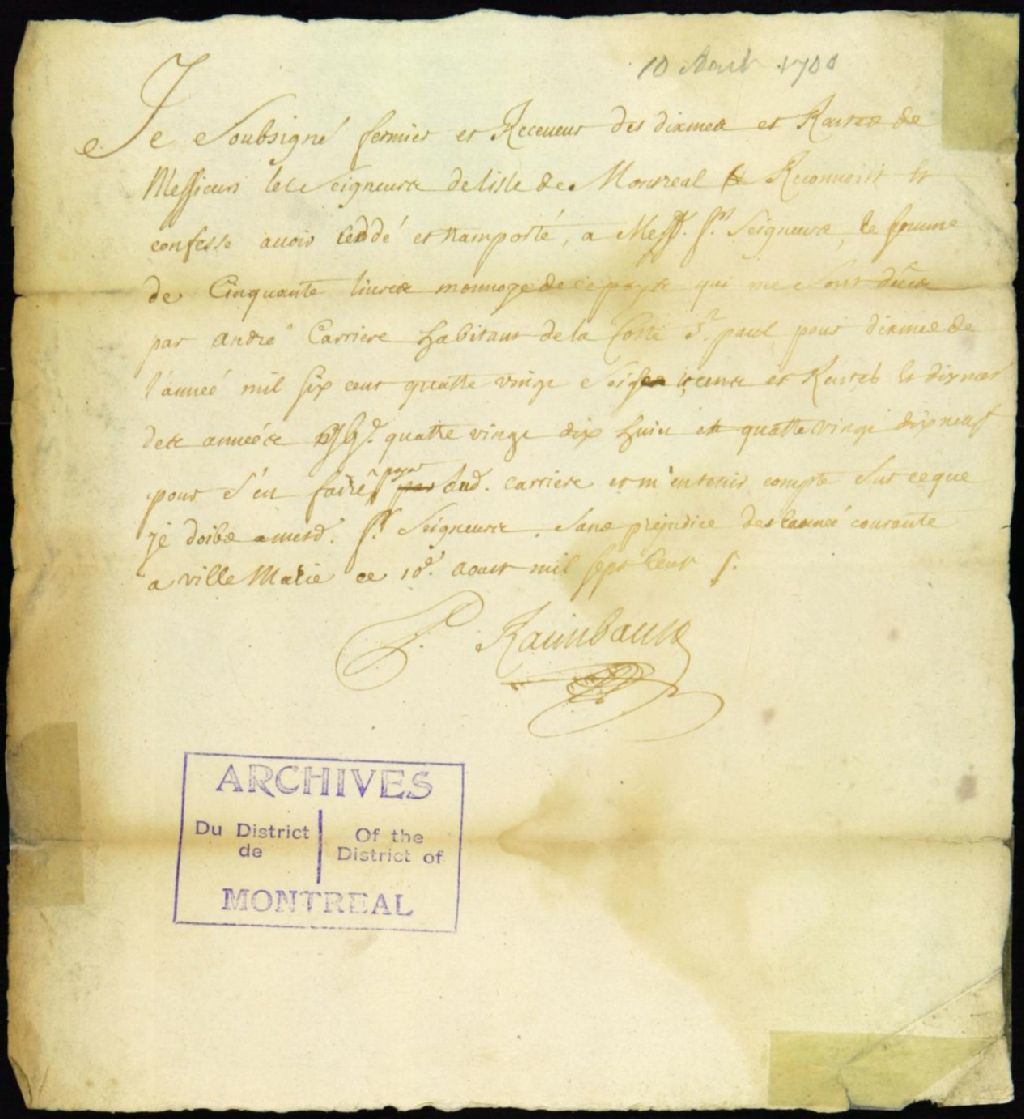 10 Aout 1700
Je Soubsigné fermier et Receveur des dixmes et Rentes de
Messieurs les Seigneurs de lisle de Montreal Reconnoist et
confesse avoir ceddé et transporté, a Mesd. Srs. Seigneurs, la somme
de Cinquante livres monnoye de ce pays qui me sont dües
par André Carriere habitant de la Coste St. paul pour dixmes de
l'année mil six cent quatre vinge seize et Rentes
des années quatre vinge dix huit et quatre vinge dix neuf
pour s'en faire payer dud. carriere et m'en tenir compte sur ce que
je doibs a mesd. Srs. Seigneurs. Sans prejudice de l'année courante
a ville Marie ce 10e. aoust mil sept Cent
P. Raimbault
ARCHIVES
Du District de
Of the District of
MONTREAL